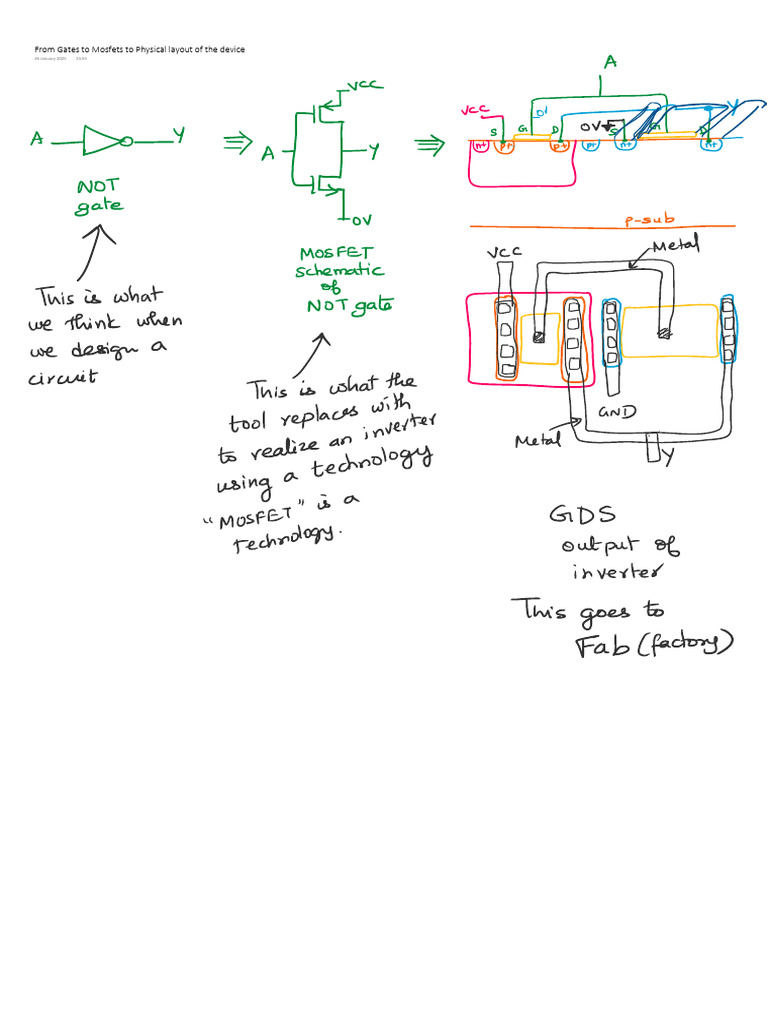 From Gates to Mosfets to Physical layout of the device
A
Y
NOT
gate
This is what
we think when
we design a
circuit
VCC
A
Y
0V
MOSFET
schematic
of
NOT gate
This is what the
tool replaces with
to realize an inverter
using a technology
"MOSFET" is a
technology.
A
VCC
S
G
D
0V
Y
D
n+
p+
p+
p+
n+
n+
p-sub
VCC
Metal
GND
Metal
Y
GDS
output of
inverter
This goes to
Fab (factory)